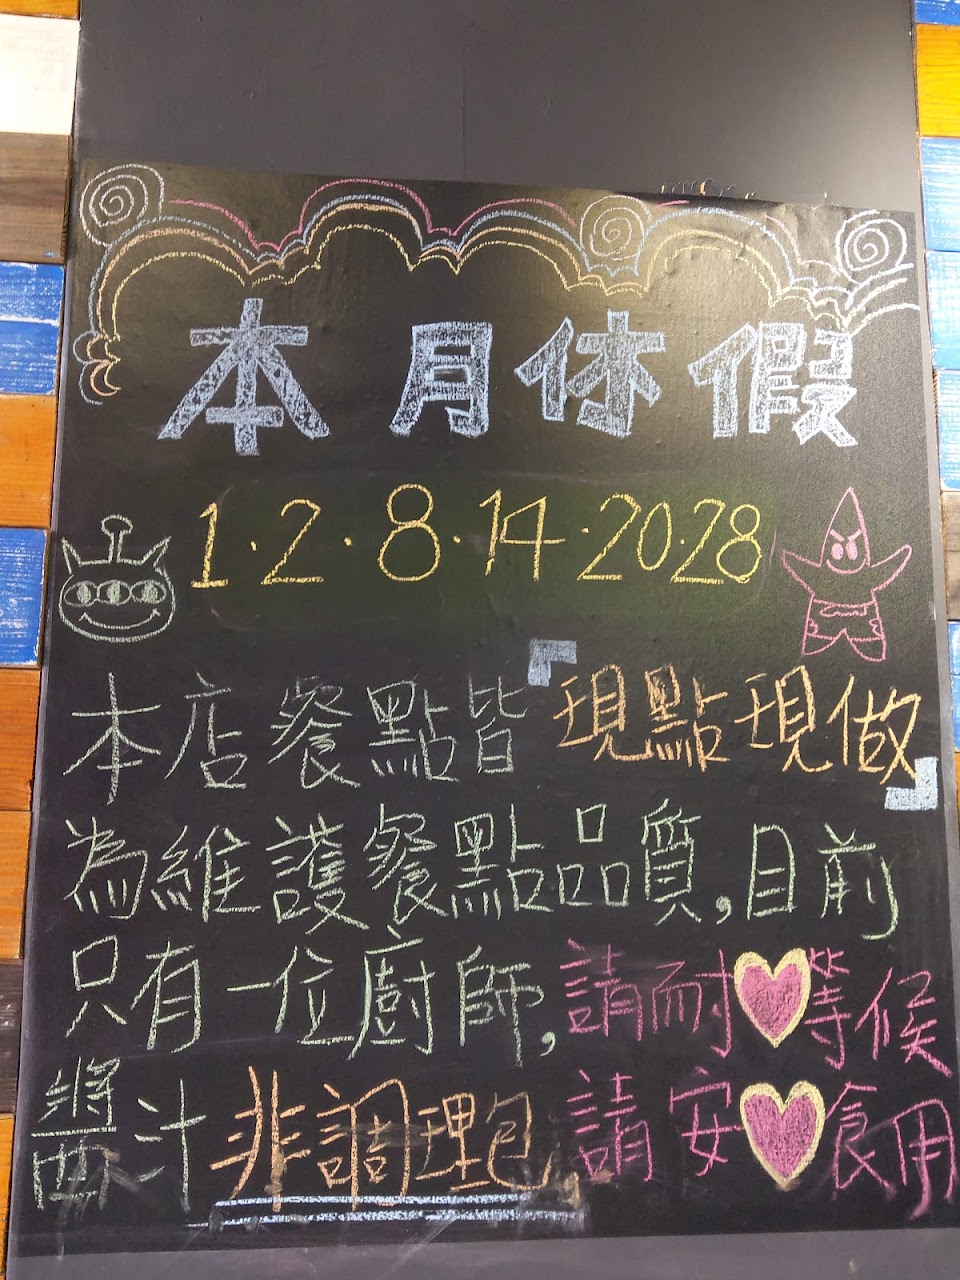 本月休假
1.2.8.14.20.28
本店餐點皆「現點現做」
為維護餐點品質,目前
只有一位廚師,請耐♥等候
醬汁非調理包,請安♥食用